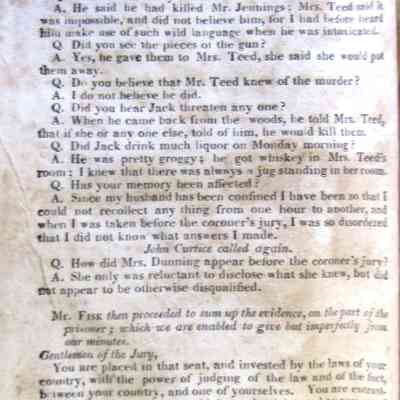 A. He said he had killed Mr. Jennings; Mrs. Teed said it
was impossible, and did not believe him, for I had before heard
him make use of such wild language when he was intoxicated.
Q. Did you see the pieces of the gun?
A. Yes, he gave them to Mrs. Teed, she said she would put
them away.
Q. Do you believe that Mr. Teed knew of the murder?
A. I do not believe he did.
Q. Did you hear Jack threaten any one?
A. When he came back from the woods, he told Mrs. Teed,
that if she or any one else, told of him, he would kill them.
Q. Did Jack drink much liquor on Monday morning?
A. He was pretty groggy; he got whiskey in Mrs. Teed's
room; I knew that there was always a jug standing in her room.
Q. Has your memory been affected?
A. Since my husband has been confined I have been so that I
could not recollect any thing from one hour to another, and
when I was taken before the coroner's jury, I was so disordered
that I did not know what answers I made.
John Curtice called again.
Q. How did Mrs. Dunning appear before the coroner's jury?
A. She only was reluctant to disclose what she knew, but did
not appear to be otherwise disqualified.
Mr. Fisk then proceeded to sum up the evidence, on the part of the
prisoner; which we are enabled to give but imperfectly from
our minutes.
Gentlemen of the Jury,
You are placed in that seat, and invested by the laws of your
country, with the power of judging of the law and of the fact,
between your country, and one of yourselves. You are